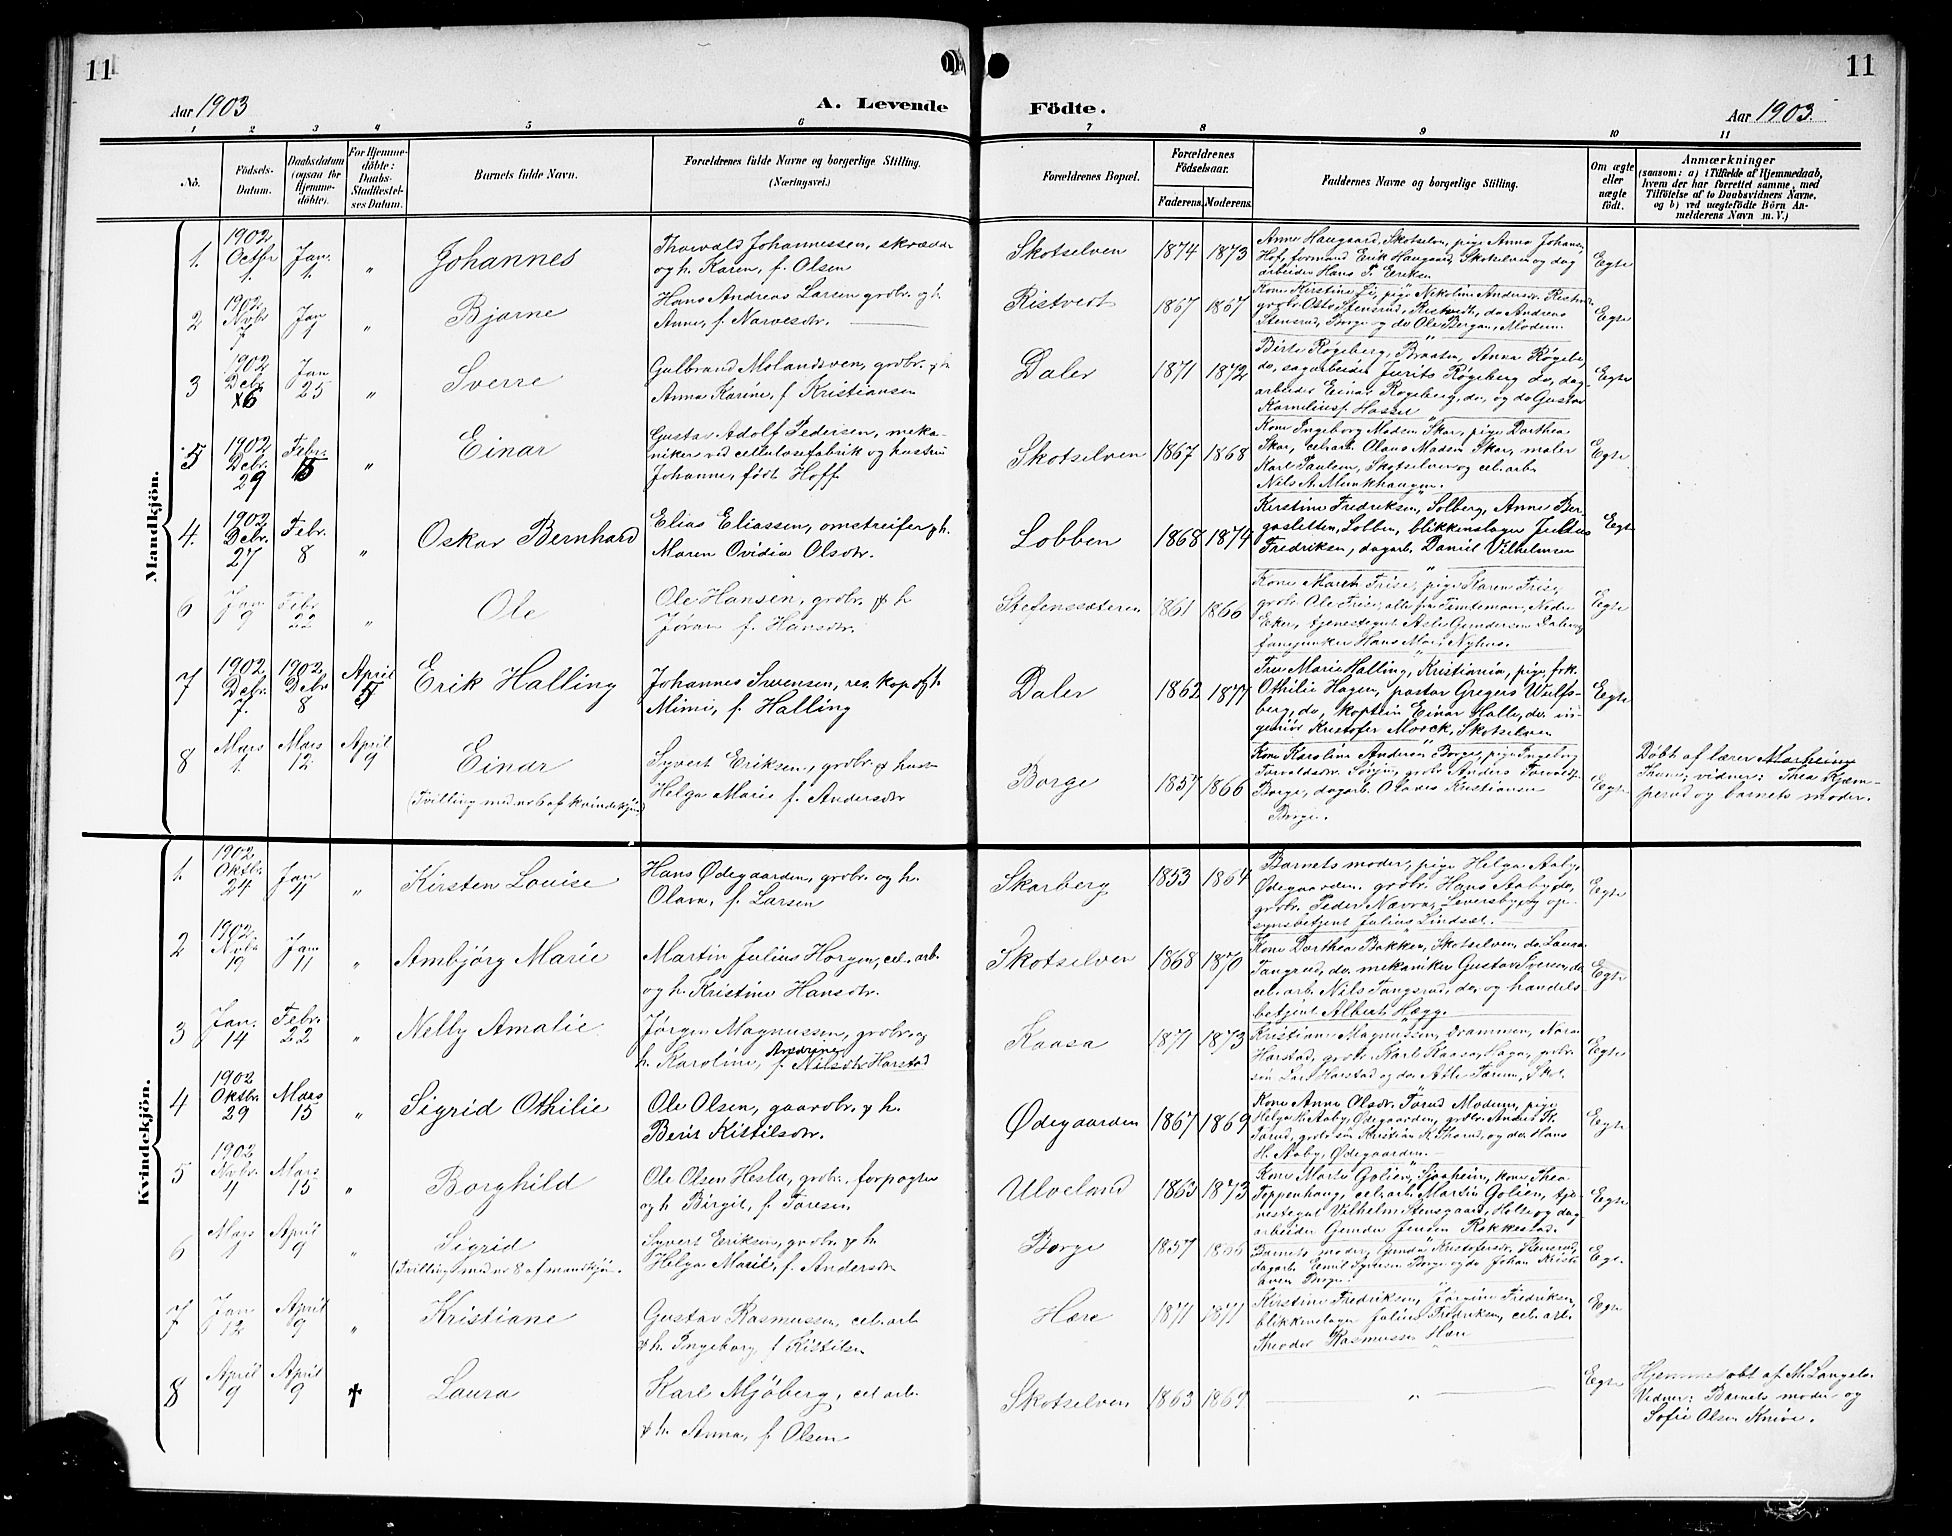 11
11
Aar 1903
A. Levende
Födte.
Aar 1903.
1 2 3 4 5 6 7 8 9 10 11
No.
Födsels-
Datum.
Daabsdatum
(ogsaa for
Hjemme-
döbte).
For Hjemme-
döbte:
Daabs-
Stadfæstel-
ses Datum.
Barnets fulde Navn.
Forældrenes fulde Navne og borgerlige Stilling.
(Næringsvei.)
Forældrenes Bopæl.
Forældrenes
Födselsaar.
Faderens.
Moderens.
Faddernes Navne og borgerlige Stilling.
Om ægte
eller
uægte
födt.
Anmærkninger
(saasom: a) i Tilfælde af Hjemmedaab,
hvem der har forrettet samme, med
Tilföielse af to Daabsvidners Navne,
og b) ved uægtefödte Börn An-
melderens Navn m. V.)
Mandkjön.
1.
1902
Octbr
1.
Jan.
1.
"
Johannes
Thorvald Johannessen, skrædder
og h. Karen, f. Olsen
Skotselven
1874
1873
Anne Haugaard, Skotselven, pige Anna Johansen
Hof, formand Erik Haugaard, Skotselven og dag
arbeider Hans P. Eriksen
Egte
2
1902
Nvbr
7
Jan
1
"
Bjarne
Hans Andreas Larsen grdbr. og h
Anne, f. Narvesdtr.
Ristvedt
1867
1867
Egte
3
1902
Debr
26
Jan
25
"
Sverre
Gulbrand Molandsveen, grdbr. & h
Anna Karine, f. Kristiansen
Daler
1871
1872
Berte Røgeberg, Braaten, Anna Røgeberg
do, sagarbeider Jurits Røgeberg do, dag-
arbeider Einar Røgeberg, do, og do Gustav
Kornelius f. Hassel
Egte
5
1902
Debr.
29
Febr.
15
"
Einar
Gustav Adolf Pedersen, meka-
niker ved cellulosefabrik og hustru
Johanne, født Hoff
Skotselven
1867
1868
Kone Ingeborg Madsen Skar, pige Dorthea
Skar, cel.arb. Olaus Madsen Skar, maler
Karl Paulsen, Skotselven og cel.arb.
Nils A. Munkhaugen.
Egte
4.
1902
Debr.
27
Febr.
8
"
Oskar Bernhard
Elias Eliassen, omstreifer & h.
Maren Ovidia Olsdtr.
Lobben
1868
1874
Kirstine Fredriksen, Solberg, Anne Ber-
gesletten, Lobben, blikkenslager Julius
Fredriksen, dagarb. Daniel Vilhelmsen
Egte
6
Jan.
9
Febr.
22
"
Ole
Ole Hansen, grdbr. & h
Jøran f. Hansdtr.
Stefenssæteren
1861
1866
Egte
7
1902
Debr.
7.
1902
Debr
8
April
5
Erik Halling
Johannes Svensen, res. kap. & h.
Mimi, f. Halling
Daler
1862
1877
Fru Marie Halling, Kristiania, pige frk.
Othilie Hagen, pastor Gregers Wulfs-
berg, do, kaptein Einar Halle, do. in-
geniør Kristofer Morck, Skotselven
Egte
8
Mars
1.
Mars
12.
April
9
Einar
(Tvilling med no 6 af kvindekjøn)
Syvert Eriksen, grdbr. & hustr
Helga Marie f. Andersdtr
Borge
1857
1866
Kone Karoline Andersen Borge, pige Ingeborg
Torvaldsdtr. Borge, grdbr Anders Torvalds.
Borge, dagarb. Olaves Kristiansen
Borge.
Egte
Døbt af lærer
vidner: Thea Kjem-
perud og barnets moder.
Kvindekjön.
1.
1902
Oktbr.
24
Jan
4
"
Kirsten Louise
Hans Ødegaarden, grdbr. og h.
Olava, f. Larsen
Skarberg
1853
1864
Barnets moder, pige Helga Aaby,
Ødegaarden, grdbr. Hans Aaby do,
grdbr. Peder Nævra, Leversby og op-
synsbetjent Julius Lindset.
Egte
2
1902.
Nvbr
19
Jan
11
"
Ambjörg Marie
Martin Julius Horgen, cel. arb.
og h. Kristine Hansdtr.
Skotselven
1868
1870
Kone Dorthea Bakken, Skotselven, do Laura
Tangrud, do. mekaniker Gustav Iversen, do
cel. arb. Nils Tangrud, do. og handels-
betjent Albert Hægg.
Egte
3
Jan.
14
Febr.
22
"
Nelly Amalie.
Jørgen Magnussen, grdbr. og
Andrine
h. Karoline, f. Nilsdtr Harstad
Kaasa
1871
1873
Egte
4
1902
Oktbr.
29
Mars
15
"
Sigrid Othilie
Ole Olsen, gaardbr. & h.
Berit Kittilsdtr.
Ødegaarden
1867
1869
Kone Anne Olsdtr. Torud Modum, pige
Helga H. Aaby, Ødegaarden, grdbr. Anders K.
Torud, grdbr.søn Kristian K. Thorud, og do. Hans
H. Aaby, Ødegaarden.
Egte
5
1902
Nvbr.
4
Mars
15
"
Borghild
Ole Olsen Hesla, grdbr. forpagter
og h Birgit, f. Toresen
Ulveland
1863
1873
Kone Marte Golien, Sjøsheim, kone Thea
Toppenhaug, cel.arb. Martin Golien, tje-
nestegut Vilhelm Stensgaard, Holte og dag
arbeider Gunder Jensen Rokkestad.
Egte
6
Mars
1
April
9
"
Sigrid
(Tvilling med no 8 af mandkjøn.
Syvert Eriksen, grdbr. & h.
Helga Marie, f. Andersdtr
Borge
1857
1866
Egte
7
Jan
12
April
9
"
Kristiane
Gustav Rasmussen, cel. arb
& h. Ingeborg, f. Kittilsen
Hære
1871
1871
Kirstine Fredriksen, Jørgine Fredriksen,
blikkenslager Julius Fredriksen, cel. arb.
Theodor Rasmussen Hære
Egte
8
April
9
April
9
†
Laura
Karl Mjøberg, cel. arb.
& h. Anna, f. Olsen
Skotselven
1863
1864
"
Egte
Hjemmedøbt af M. Langelo.
Vidner: Barnets moder og
Sofie Olsen Knive.